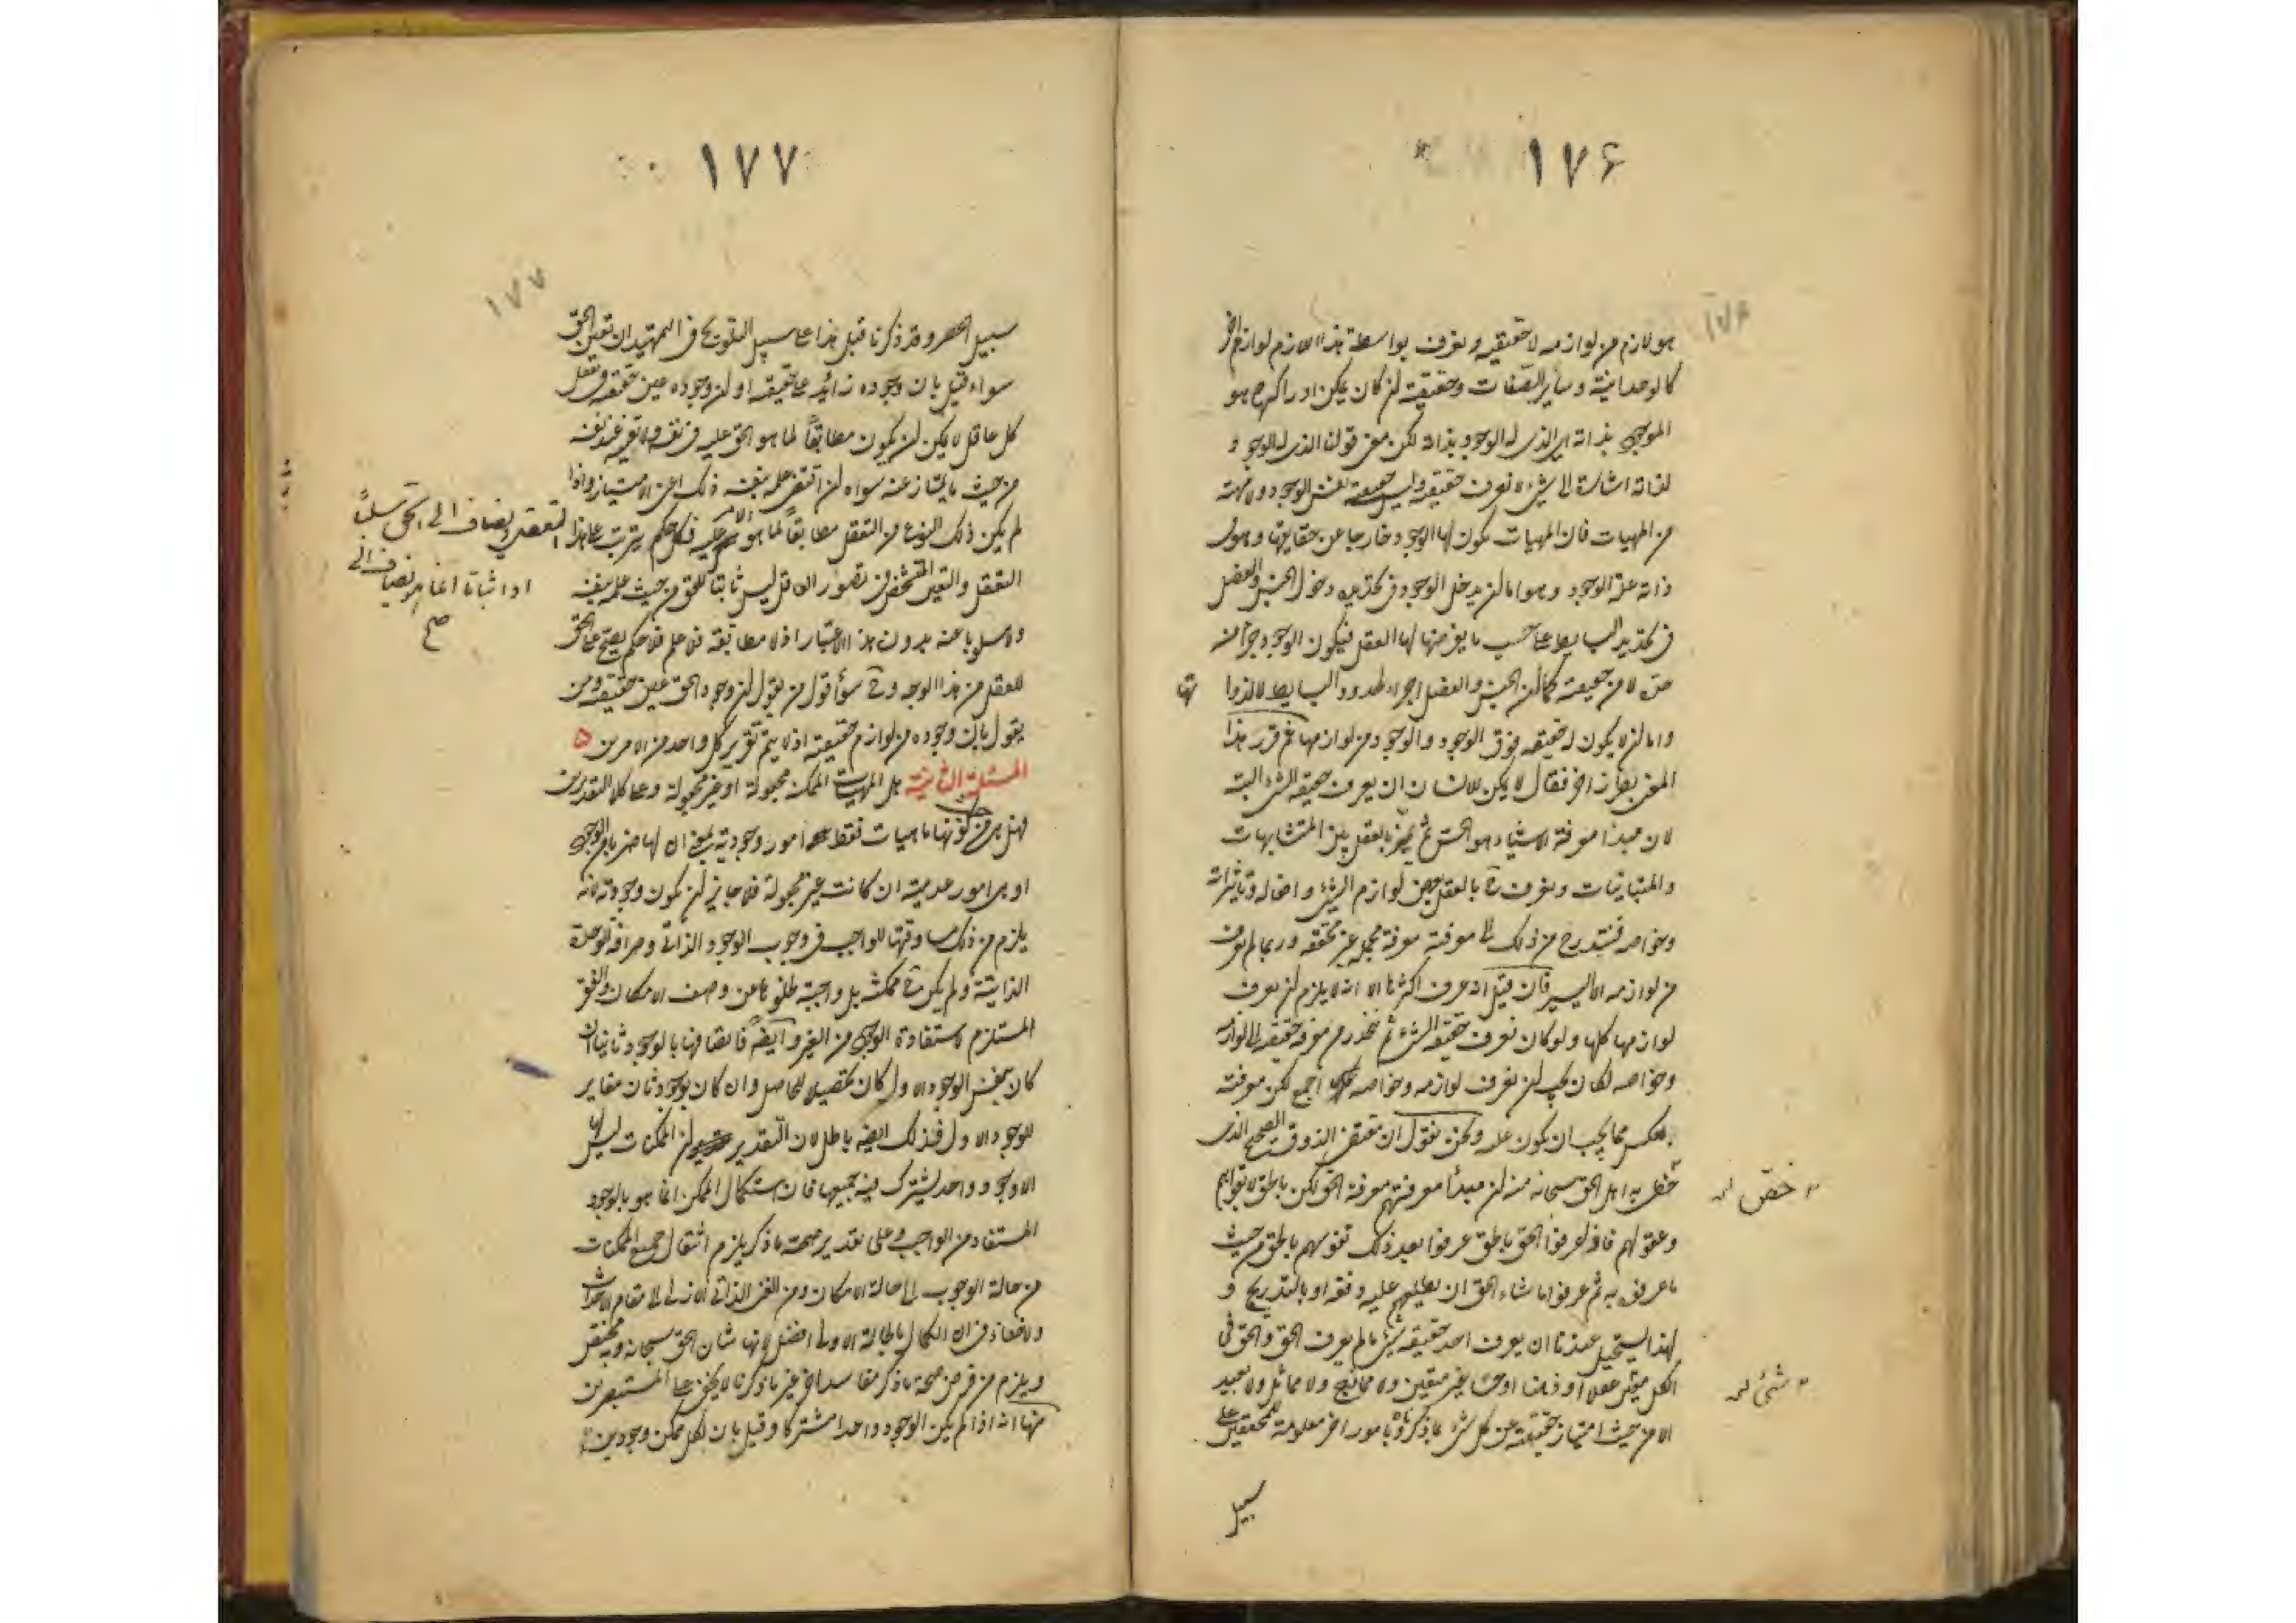 ١٧۶
١٧۶
هو لازم من لوازمه لا حقيقته ويعرف بواسطة هذا اللازم لوازم اخر
كالوحدانية وساير الصفات وحقيقته ان كان يمكن ادراكها هو
الموجود بذاته اى الذى له الوجود بذاته لكن معنى قولنا الذى له الوجود
لذاته اشارة الى شئ لا نعرف حقيقته وليس حقيقته نفس الوجود ولا مهية
من المهيات فان المهيات يكون لها الوجود خارجا عن حقايقها وهو فى
ذاته علة الوجود وهو اما ان يدخل الوجود فى تحديده دخول الجنس والفصل
فى تحديد البسايط على حسب ما يفرضها لها العقل فيكون الوجود جزأ من
حده لا من حقيقته كما ان الجنس والفصل اجزاء لحدود البسايط لا لذواتها
واما ان يكون له حقيقة فوق الوجود والوجود من لوازمها ثم قرر هذا
المعنى بطراز اخر فقال لا يمكن للانسان ان يعرف حقيقة الشئ البتة
لان مبدأ معرفة الاشياء هو الحس ثم يميز بالعقل بين المتشابهات
والمتباينات ويعرف ح بالعقل بعض لوازم الشئ وافعاله وتاثيراته
وخواصه فيتدرج من ذلك الى معرفته معرفة مجملة غير محققة وربما لم يعرف
من لوازمه الا اليسير فان قيل انه عرف اكثرها الا انه لا يلزم ان يعرف
لوازمها كلها ولو كان يعرف حقيقة الشئ ثم ينحدر من معرفة حقيقته الى لوازمه
وخواصه لكان يجب ان يعرف لوازمه وخواصه اجمع لكن معرفته
بالعكس مما يجب ان يكون عليه ونحن نقول ان مقتضى الذوق الصحيح الذى
خص به اهل الحق سبحانه منه ان مبدأ معرفتهم معرفة الحق لكن بالحق لا بقواهم
خص
وعقولهم فاذا عرفوا الحق بالحق عرفوا بعد ذلك نفوسهم بالحق من حيث
ما عرفوه به ثم عرفوا ما شاء الحق ان يطلعهم عليه دفعة او بالتدريج و
لهذا يستحيل عندنا ان يعرف احد حقيقة شئ ما لم يعرف الحق والحق فى
شئ
الامر حيث امتياز حقيقته عن كل شئ بما ذكرناه وبامور اخر معلومة للمحققين على
سبيل
١٧٧
١٧٧
سبيل الحصر وقد ذكرنا قبل هذا على سبيل التلويح فى التمهيد ان تعين الحق
سواء قيل بان وجوده زائد على حقيقته او ان وجوده عين حقيقته وتعقل
كل عاقل لا يمكن ان يكون مطابقاً لما هو الحق عليه فى نفسه ولا تعينه عند نفسه
من حيث ما يمتاز عنه سواه ان اقتضى علمه بنفسه ذلك اعنى الامتياز واذا
لم يكن ذلك النوع من التعقل مطابقاً لما هو الامر عليه فكل حكم يترتب على هذا
التعقل ويضاف الى الحق سلباً
او اثباتا انما هو يضاف الى
صح
التعقل والتعين المتشخص فى تصور العاقل ليس ثابتا للحق من حيث علمه بنفسه
ولا مسلوبا عنه بدون هذا الاعتبار اذ لا مطابقة فلا علم فلا حكم يصح على الحق
للعقل من هذا الوجه وح سواء قول من يقول ان وجود الحق عين حقيقته ومن
يقول بان وجوده من لوازم حقيقته اذ لا يتم تقرير كل واحد من الامرين
المسئلة الثانية هل المهيات الممكنة مجعولة او غير مجعولة وعلى كلا التقديرين
فهل هى من حيث كونها ماهيات فقط امور وجودية بمعنى ان لها ضربا من الوجود
او هى امور عدمية ان كانت غير مجعولة فلا جايز ان يكون وجودية لانه
يلزم من ذلك مساوقتها للواجب فى وجوب الوجود الذاتى وصرافة الوحدة
الذاتية ولم يكن ح ممكنة بل واجبة لخلوها عن وصف الامكان والفقر
المستلزم لاستفادة الوجود من الغير وايضا فاتصافها بالوجود ثانيا ان
كان بنفس الوجود الاول كان تحصيلا للحاصل وان كان بوجود ثان مغاير
للوجود الاول فذلك ايضا باطل لان التقدير ان الممكنات ليس لها
الا وجود واحد يشترك فيه جميعها فان استكمال الممكن انما هو بالوجود
المستفاد من الواجب وعلى تقدير صحة ما ذكر يلزم انتقال جميع الممكنات
من حالة الوجوب الى حالة الامكان ومن الغنى الذاتى الازلى الى مقام الاحتياج
ولا خفاء فى ان الكمال بالحالة الاولى افضل لانها شان الحق سبحانه وبه يختص
ويلزم من فرض صحة ما ذكر مفاسد اخر غير ما ذكرنا لا يخفى على المستبصرين
منها انه اذا لم يكن الوجود واحدا مشتركا وقيل بان لكل ممكن وجودين